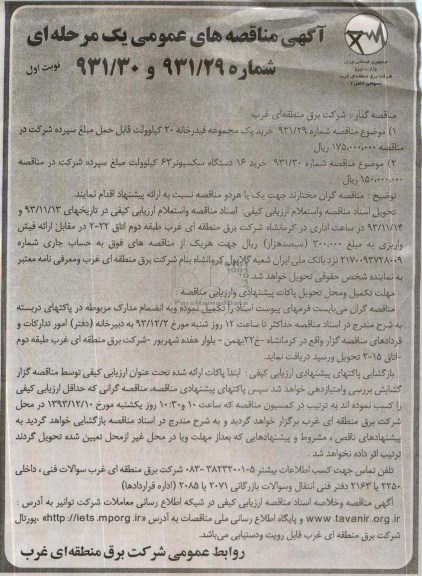 آگهی مناقصه های عمومی یک مرحله ای
شماره ۹۳۱/۲۹ و ۹۳۱/۳۰
نوبت اول
جمهوری اسلامی ایران
وزارت نیرو
شرکت برق منطقه ای غرب
مناقصه گذار : شرکت برق منطقه‌ای غرب
۱) موضوع مناقصه شماره ۹۳۱/۲۹ خرید یک مجموعه فیدرخانه ۲۰ کیلوولت قابل حمل مبلغ سپرده شرکت در
مناقصه ۱۷۵،۰۰۰،۰۰۰ ریال
۲) موضوع مناقصه شماره ۹۳۱/۳۰ خرید ۱۶ دستگاه سکسیونر ۶۳ کیلوولت مبلغ سپرده شرکت در مناقصه
۱۵۰،۰۰۰،۰۰۰ ریال
توضیح : مناقصه گران مختارند جهت یک یا هردو مناقصه نسبت به ارائه پیشنهاد اقدام نمایند.
تحویل اسناد مناقصه واستعلام ارزیابی کیفی: اسناد مناقصه واستعلام ارزیابی کیفی در تاریخهای ۹۳/۱۱/۱۳ و
۹۳/۱۱/۱۴ در ساعت اداری در کرمانشاه شرکت برق منطقه ای غرب طبقه دوم اتاق ۲۰۲۲ در مقابل ارائه فیش
واریزی به مبلغ ۳۰۰،۰۰۰ (سیصدهزار) ریال جهت هریک از مناقصه های فوق به حساب جاری شماره
۲۱۷۰۰۹۳۷۲۸۰۰۹ نزد بانک ملی ایران شعبه گلایول کرمانشاه بنام شرکت برق منطقه ای غرب ومعرفی نامه معتبر
به نماینده شخص حقوقی تحویل خواهد شد.
مهلت تکمیل ومحل تحویل پاکات پیشنهادی وارزیابی مناقصه
مناقصه گران می‌بایست فرمهای پیوست اسناد را تکمیل نموده وبه انضمام مدارک مربوطه در پاکتهای دربسته
به شرح مندرج در اسناد مناقصه حداکثر تا ساعت ۱۲ روز شنبه مورخ ۹۳/۱۲/۲ به دبیرخانه (دفتر) امور تدارکات و
قراردادهای مناقصه گزار واقع در کرمانشاه -خ ۲۲بهمن - بلوار هفده شهریور -شرکت برق منطقه ای غرب طبقه دوم
-اتاق ۱۵-۲ تحویل ورسید دریافت نماید.
بازگشایی پاکتهای پیشنهادی ارزیابی کیفی : ابتدا پاکات ارائه شده تحت عنوان ارزیابی کیفی توسط مناقصه گزار
گشایش بررسی وامتیازدهی خواهد شد سپس پاکتهای پیشنهادی مناقصه، مناقصه گرانی که حداقل ارزیابی کیفی
را کسب نموده اند به ترتیب در کمسیون مناقصه که ساعت ۱۰ و۱۰:۳۰ روز یکشنبه مورخ ۱۳۹۳/۱۲/۱۰ در محل
شرکت برق منطقه ای غرب برگزار خواهد گردید و به شرح مندرج در اسناد مناقصه بازگشایی خواهد گردید به
پیشنهادهای ناقص ، مشروط و پیشنهادهایی که بعداز مهلت ویا در محل غیر ازمحل تعیین شده تحویل گردند
ترتیب اثر داده نخواهد شد .
تلفن تماس جهت کسب اطلاعات بیشتر ۵-۳۸۲۳۲۰۰۱-۰۸۳ شرکت برق منطقه ای غرب سوالات فنی ، داخلی
۲۲۵۰ یا ۲۱۶۳ دفتر فنی انتقال وسوالات بازرگانی ۲۰۷۱ یا ۲۰۸۵ (اداره قراردادها)
آگهی مناقصه وخلاصه اسناد مناقصه ارزیابی کیفی در شبکه اطلاع رسانی معاملات شرکت توانیر به آدرس :
www.tavanir.org.ir و پایگاه اطلاع رسانی ملی مناقصات به آدرس «http://iets.mporg.ir» ،پورتال
شرکت برق منطقه ای غرب قابل رویت ودستیابی می‌باشد.
روابط عمومی شرکت برق منطقه‌ای غرب